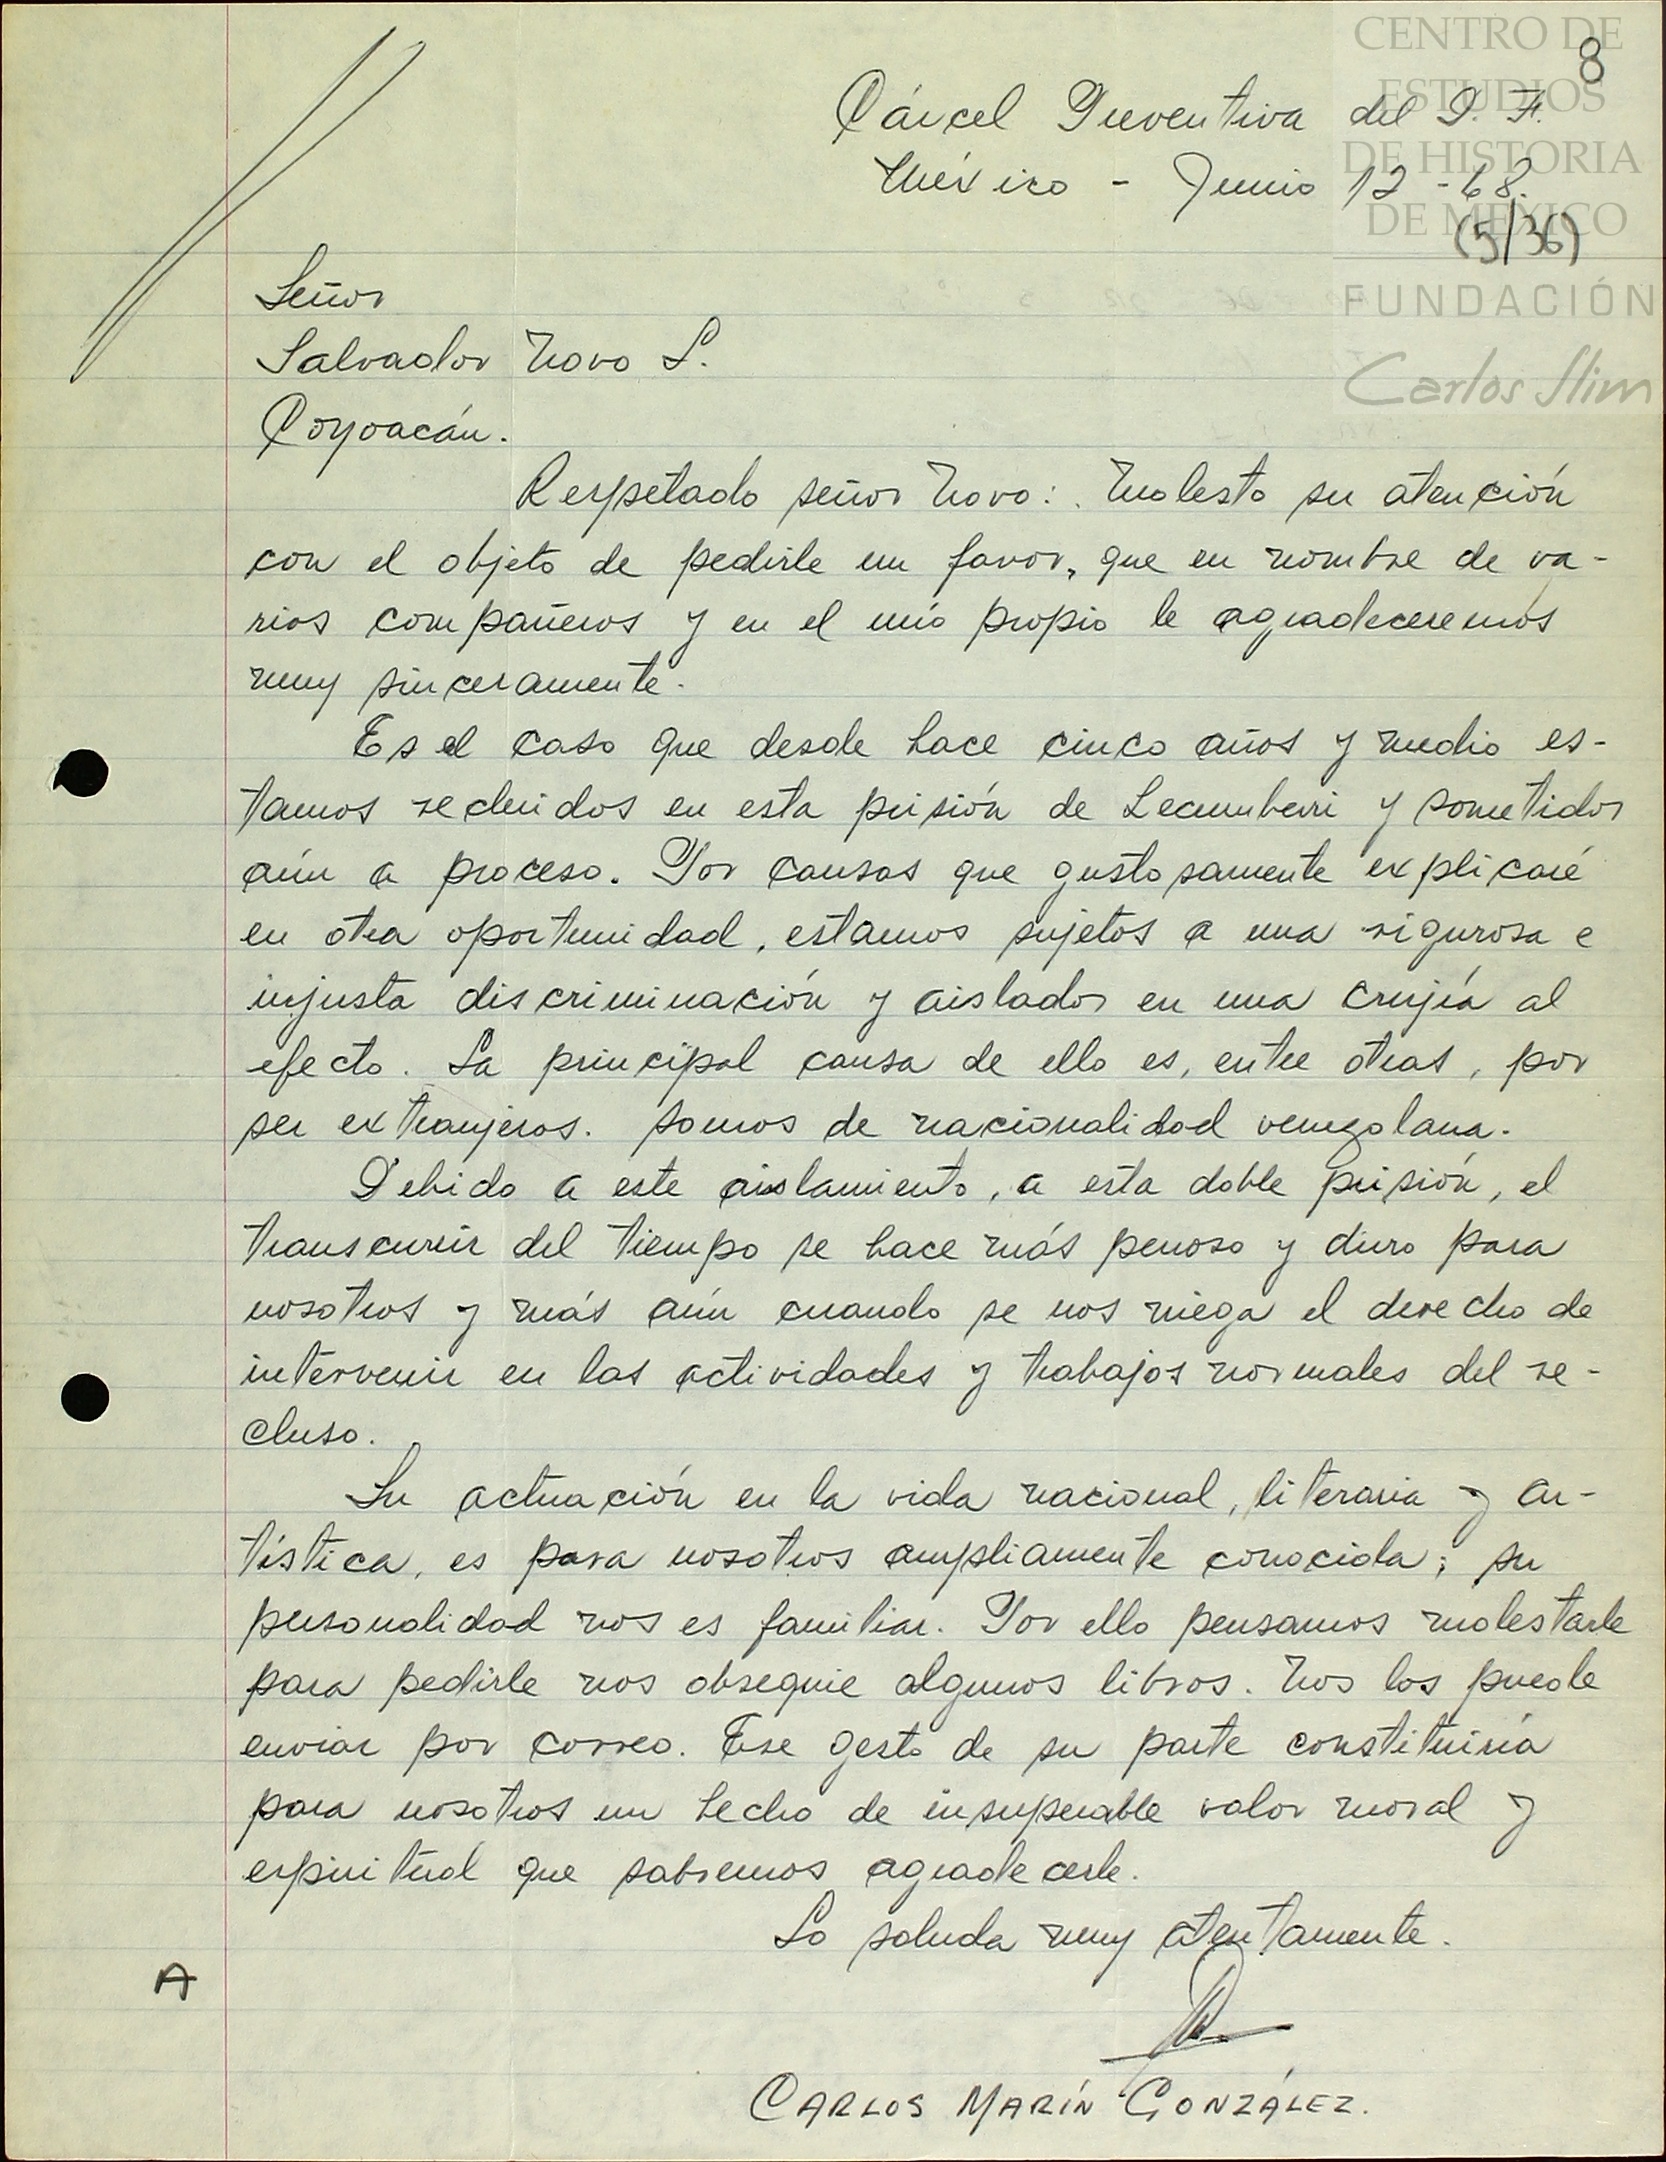 CENTRO DE
ESTUDIOS
DE HISTORIA
DE MÉXICO
FUNDACIÓN
Carlos Slim
8
Cárcel Preventiva del D. F.
México - Junio 12 - 68.
(5/36)
Señor
Salvador Novo L.
Coyoacán.
Respetado señor Novo: Molesto su atención
con el objeto de pedirle un favor, que en nombre de va-
rios compañeros y en el mío propio le agradeceremos
muy sinceramente.
Es el caso que desde hace cinco años y medio es-
tamos recluidos en esta prisión de Lecumberri y sometidos
aún a proceso. Por causas que gustosamente explicaré
en otra oportunidad, estamos sujetos a una rigurosa e
injusta discriminación y aislados en una crujía al
efecto. La principal causa de ello es, entre otras, por
ser extranjeros. Somos de nacionalidad venezolana.
Debido a este aislamiento, a esta doble prisión, el
transcurrir del tiempo se hace más penoso y duro para
nosotros y más aún cuando se nos niega el derecho de
intervenir en las actividades y trabajos normales del re-
cluso.
Su actuación en la vida nacional, literaria y ar-
tística, es para nosotros ampliamente conocida; su
personalidad nos es familiar. Por ello pensamos molestarle
para pedirle nos obsequie algunos libros. Nos los puede
enviar por correo. Ese gesto de su parte constituiría
para nosotros un hecho de insuperable valor moral y
espiritual que sabremos agradecerle.
Lo saluda muy atentamente.
A
CARLOS MARÍN GONZÁLEZ.